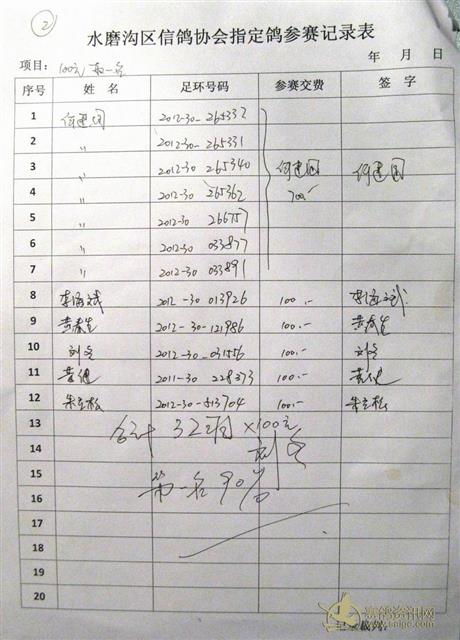 2
水磨沟区信鸽协会指定鸽参赛记录表
年 月 日
项目: 100元/取一名
序号 姓 名 足环号码 参赛交费 签 字
1 何建国 2012-30-265332
2 〃 2012-30-265331
3 〃 2012-30-265340 何建国 何建国
4 〃 2012-30 265362 700.-
5 〃 2012-30 266757
6 〃 2012-30 033877
7 〃 2012-30 033891
8 李海斌 2012-30 013926 100.- 李海斌
9 黄春生 2012-30-121986 100.- 黄春生
10 刘 2012-30-031556 100.- 刘
11 黄健 2011-30 228373 100.- 黄健
12 朱立松 2012-30-513704 100.- 朱立松
13 合计 32羽×100元
14 刘
15
16 第一名90%
17
18
19
20
赛鸽资讯网
记录裁判: